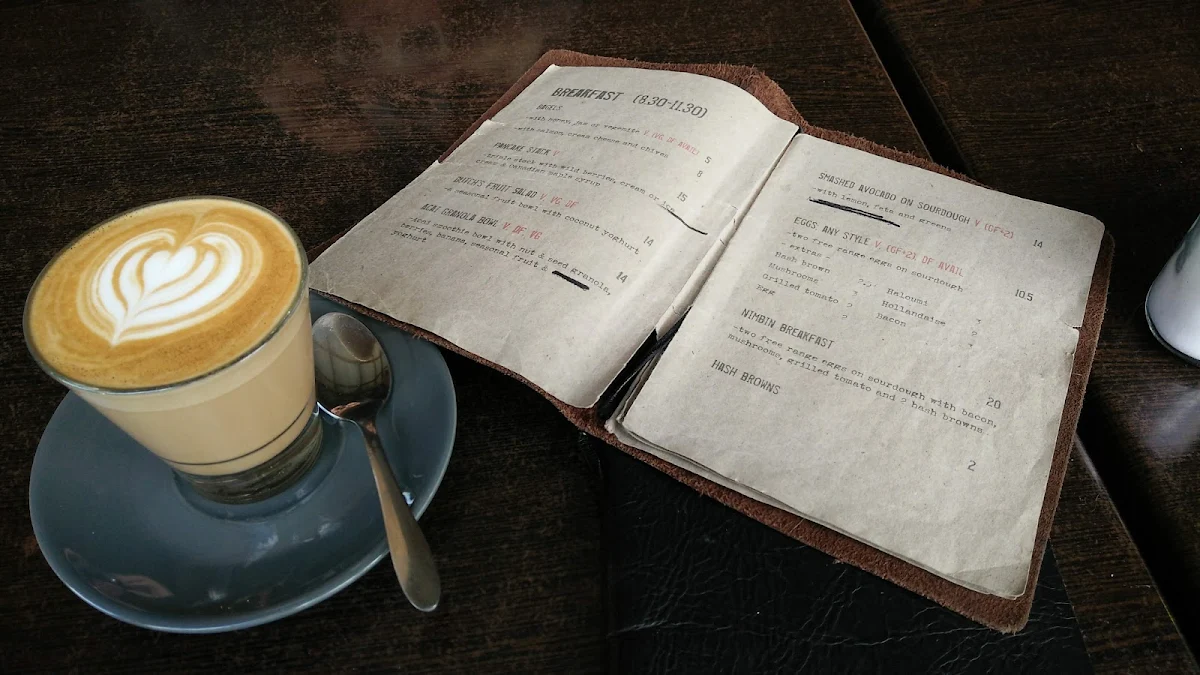 BREAKFAST (8.30-11.30)
BAGELS
-with honey, jam or vegemite V, (VG, DF AVAIL) 5
-with salmon, cream cheese and chives 8
PANCAKE STACK V
-triple stack with wild berries, cream or ice 15
cream & canadian maple syrup
BUTCH'S FRUIT SALAD V, VG, DF
-a seasonal fruit bowl with coconut yoghurt 14
ACAI GRANOLA BOWL V, DF, VG
-acai smoothie bowl with nut & seed granola, 14
berries, banana, seasonal fruit &
yoghurt
SMASHED AVOCADO ON SOURDOUGH V (GF+2) 14
-with lemon, feta and greens
EGGS ANY STYLE V, (GF+2), DF AVAIL
-two free range eggs on sourdough 10.5
- extras -
Hash brown Haloumi
Mushrooms Hollandaise
Grilled tomato 2 Bacon
Egg 2
NIMBIN BREAKFAST
-two free range eggs on sourdough with bacon, 20
mushrooms, grilled tomato and 2 hash browns
HASH BROWNS 2